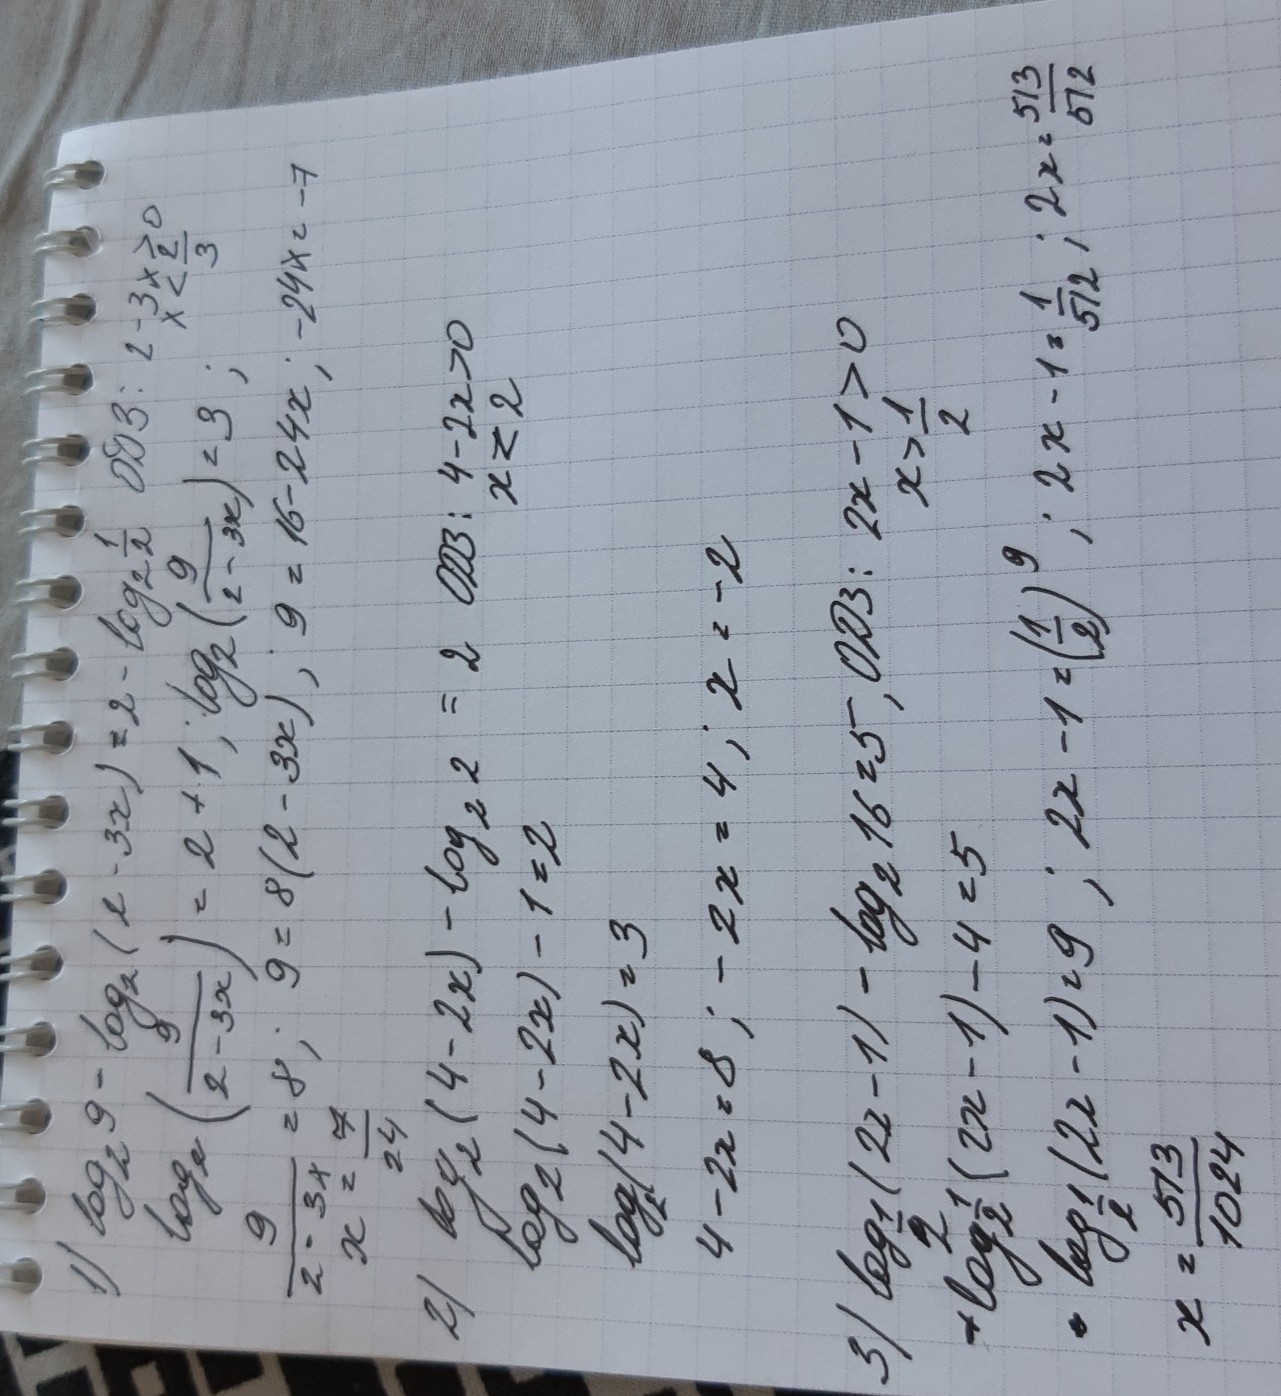 1) log₂9 - log₂(2 - 3x) = 2 - log₂ 1/2 ОДЗ: 2 - 3x > 0
x < 2/3
log₂(9/(2 - 3x)) = 2 + 1; log₂(9/(2 - 3x)) = 3;
9/(2 - 3x) = 8; 9 = 8(2 - 3x); 9 = 16 - 24x; -24x = -7
x = 7/24
2) log₂(4 - 2x) - log₂2 = 2 ОДЗ: 4 - 2x > 0
x < 2
log₂(4 - 2x) - 1 = 2
log₂(4 - 2x) = 3
4 - 2x = 8; -2x = 4; x = -2
3) log_{1/2}(2x - 1) - log₂16 = 5, ОДЗ: 2x - 1 > 0
x > 1/2
log_{1/2}(2x - 1) - 4 = 5
log_{1/2}(2x - 1) = 9; 2x - 1 = (1/2)⁹; 2x - 1 = 1/512; 2x = 513/512
x = 513/1024